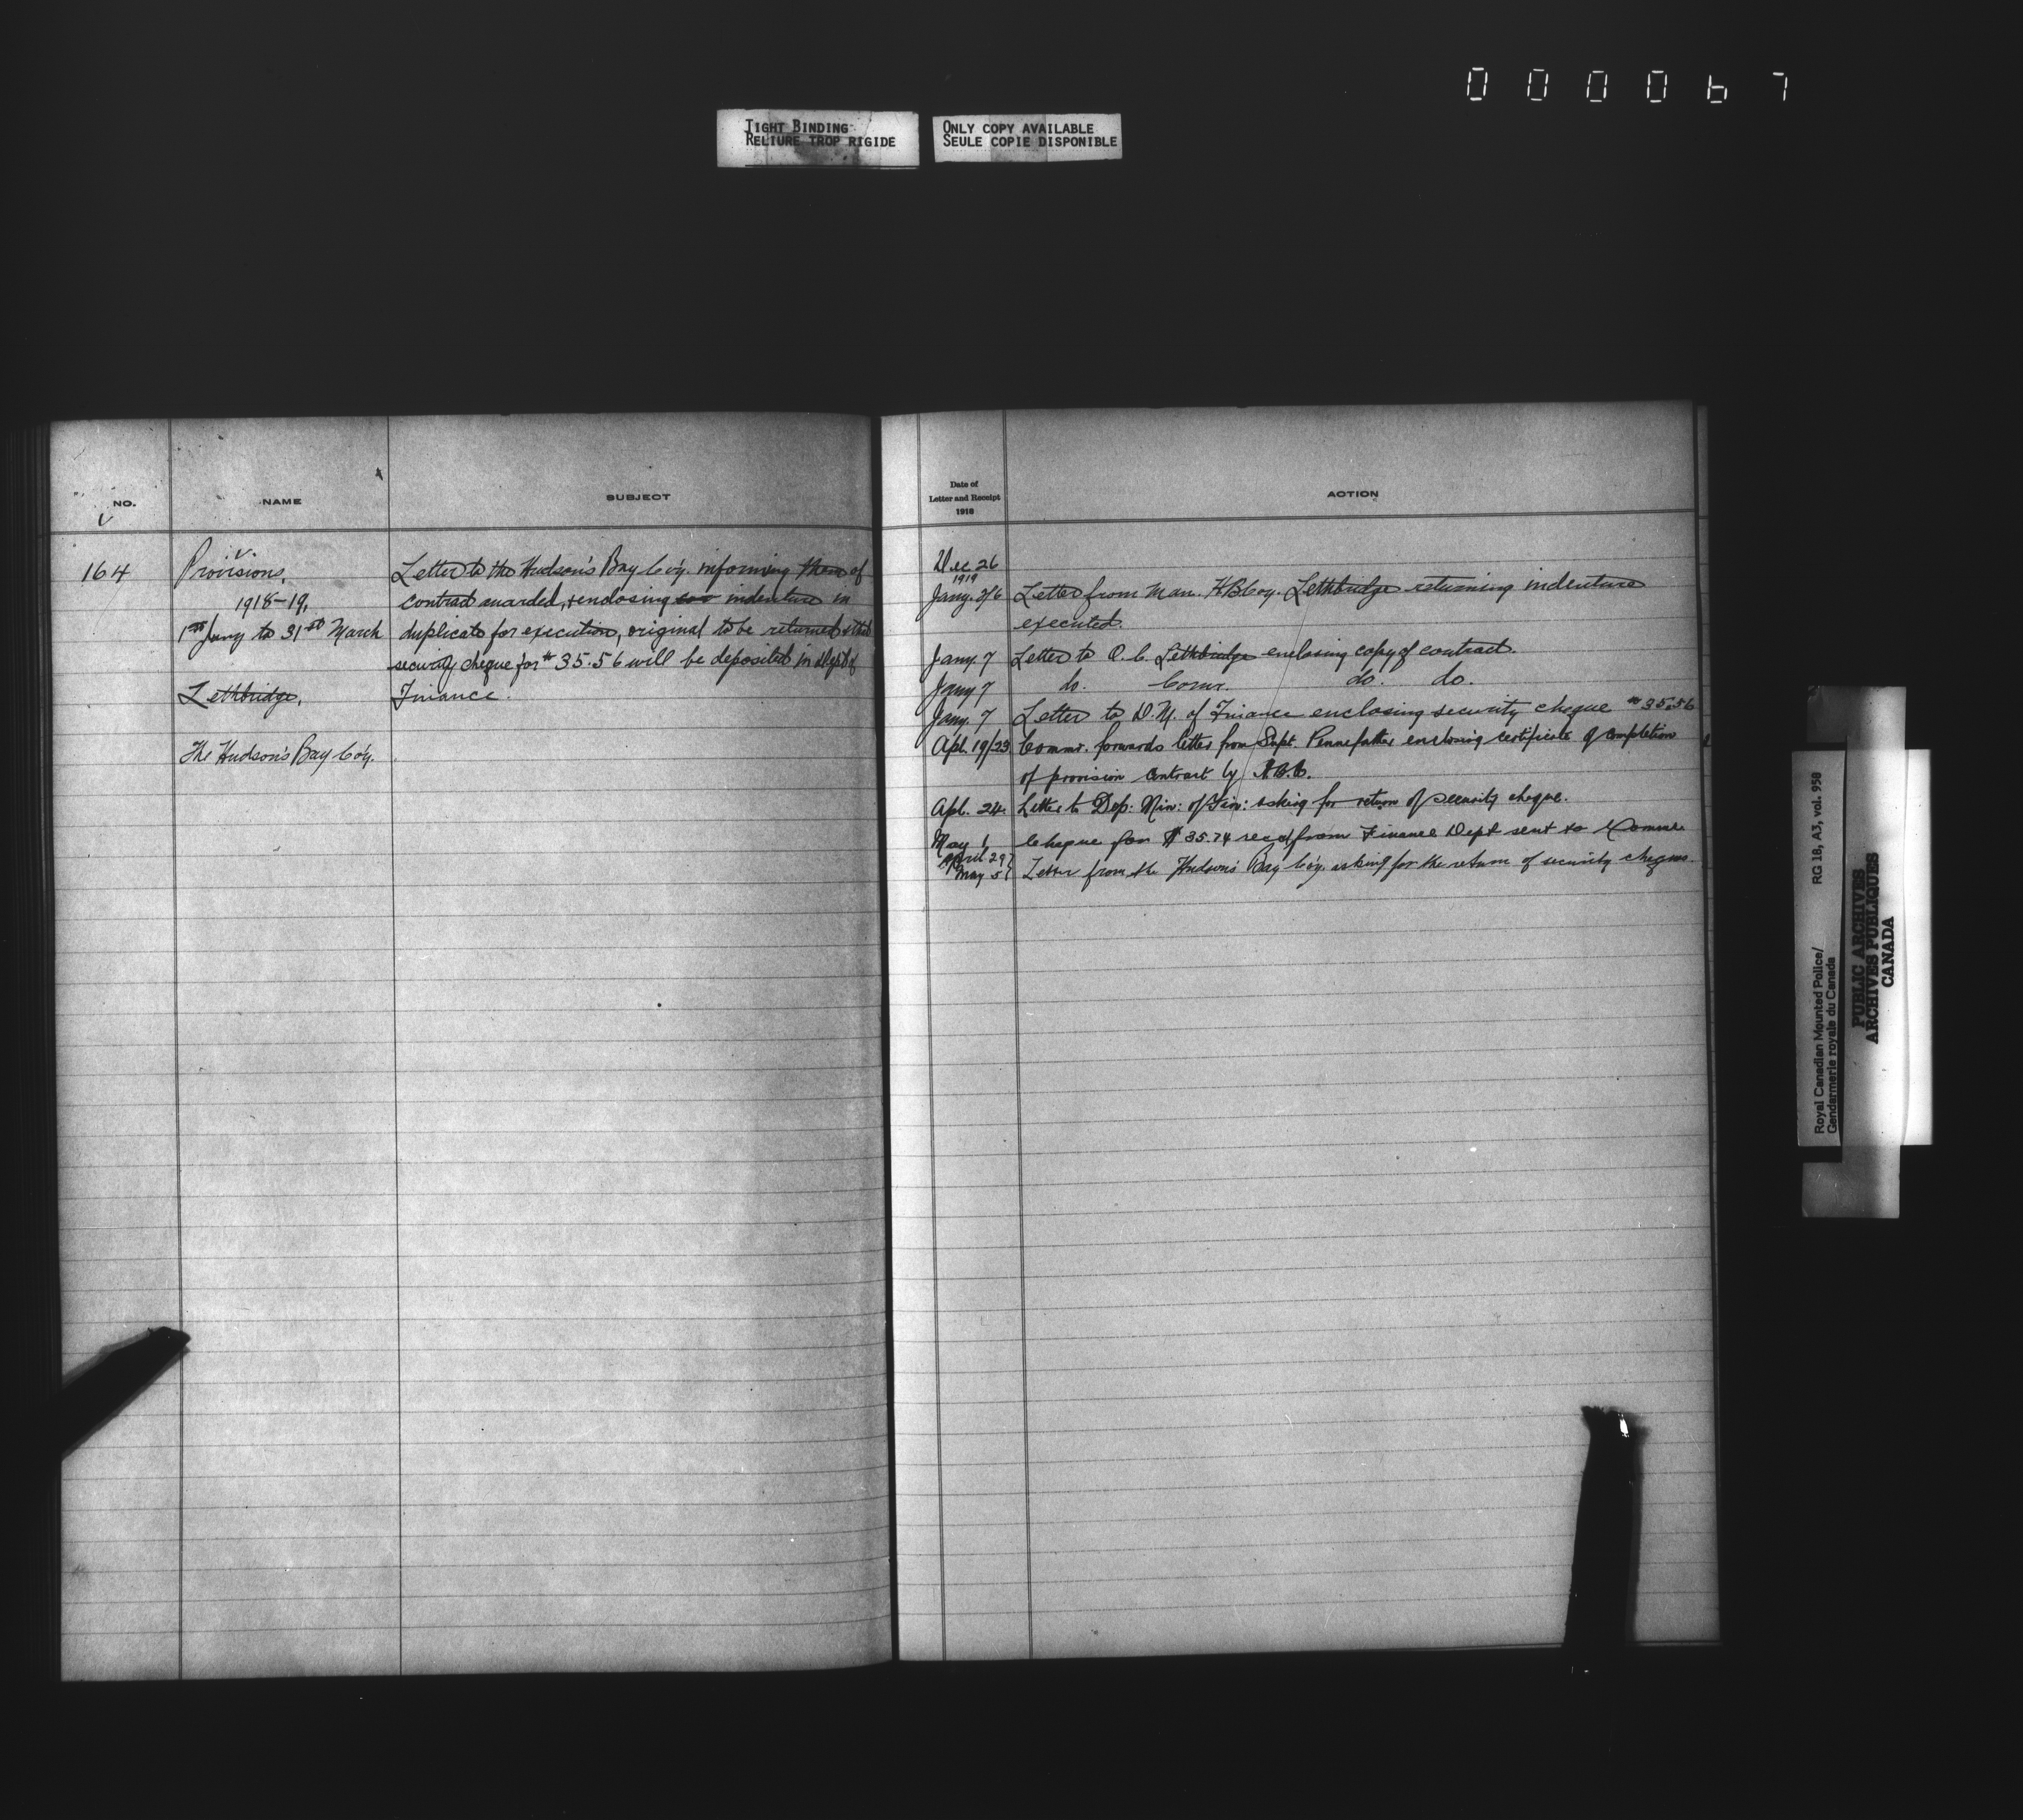 000067
TIGHT BINDING
RELIURE TROP RIGIDE
ONLY COPY AVAILABLE
SEULE COPIE DISPONIBLE
NO.
NAME
SUBJECT
164
Provisions,
1918-19,
1st Jany to 31st March
Lethbridge,
The Hudson's Bay Co'y.
Letter to the Hudson's Bay Co'y. informing them of
contract awarded, & enclosing indenture in
duplicate for execution, original to be returned & that
security cheque for $35.56 will be deposited in Dept of
Finance.
Date of
Letter and Receipt
1918
ACTION
Dec 26
1919
Jany. 3/6 Letter from Man. H.B.Coy. Lethbridge returning indenture
executed.
Jany. 7 Letter to O.C. Lethbridge enclosing copy of contract.
Jany 7 do. Comr. do. do.
Jany. 7 Letter to D.M. of Finance enclosing security cheque $35.56
Apl. 19/23 Commr. forwards letter from Supt. Pennefather enclosing certificate of completion
of provision contract by H.B.C.
Apl. 24. Letter to Dep: Min: of Fin: asking for return of security cheque.
May 1 Cheque for $35.74 recd from Finance Dept sent to Commr
April 29
May 5 Letter from the Hudson's Bay Co'y. asking for the return of security cheques.
Royal Canadian Mounted Police/
Gendarmerie royale du Canada
RG 18, A3, vol. 950
PUBLIC ARCHIVES
ARCHIVES PUBLIQUES
CANADA